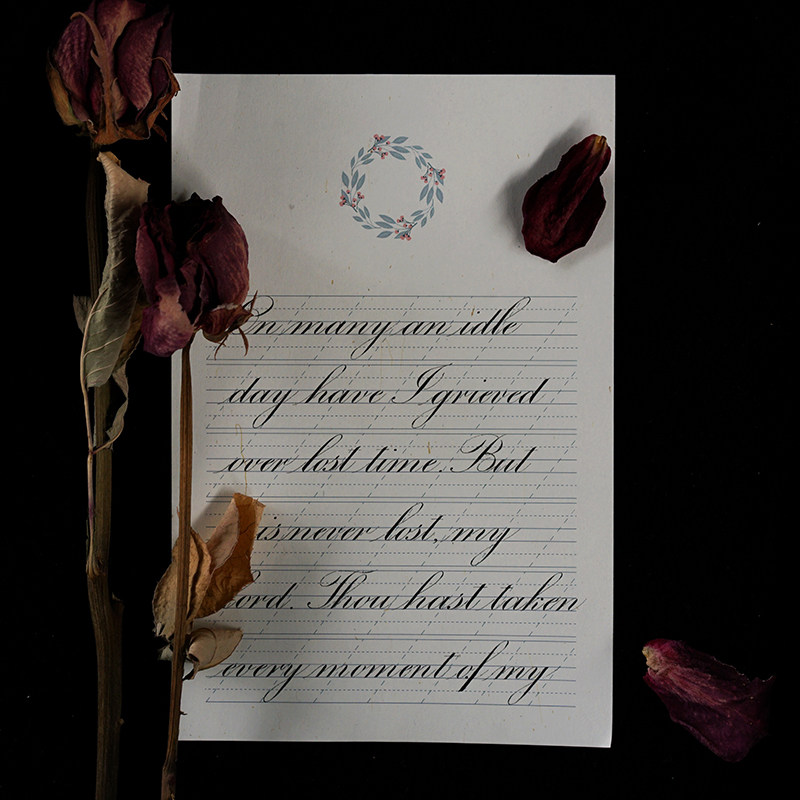 On many an idle
day have I grieved
over lost time. But
is never lost, my
lord. Thou hast taken
every moment of my